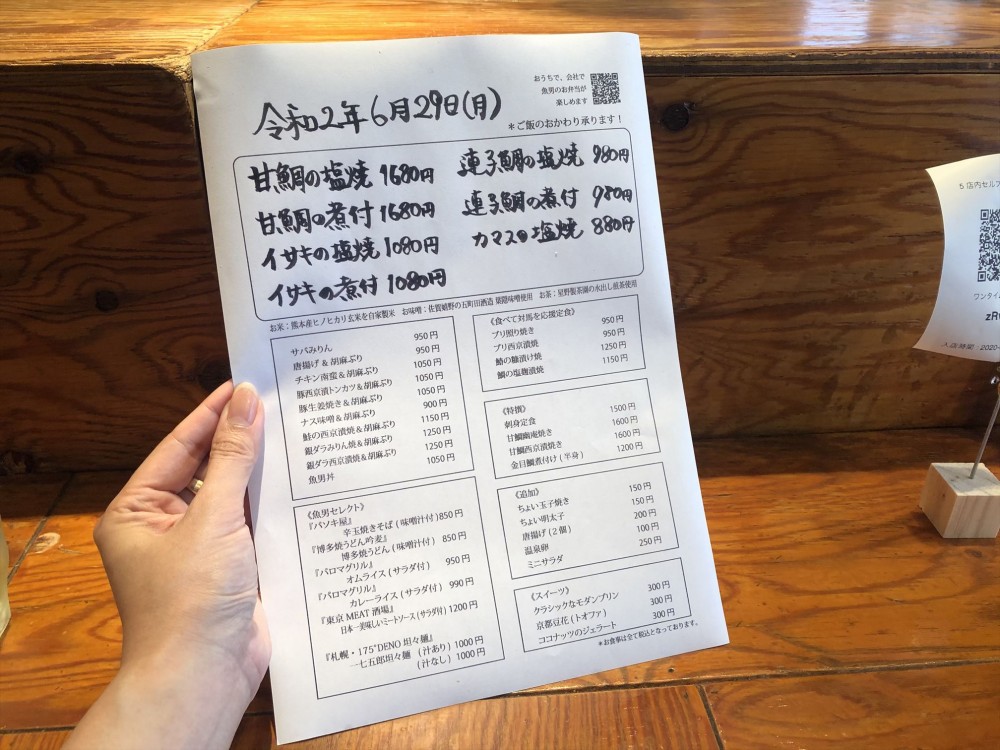 おうちで、会社で
魚男のお弁当が
楽しめます
令和2年6月29日(月)
*ご飯のおかわり承ります!
甘鯛の塩焼 1680円
甘鯛の煮付 1680円
イサキの塩焼 1080円
イサキの煮付 1080円
連子鯛の塩焼 980円
連子鯛の煮付 980円
カマスの塩焼 880円
お米:熊本産ヒノヒカリ玄米を自家製米 お味噌:佐賀嬉野の五町田酒造 味噌使用 お茶:星野製茶園の水出し煎茶使用
サバみりん 950円
唐揚げ&胡麻ぶり 950円
チキン南蛮&胡麻ぶり 1050円
豚西京漬トンカツ&胡麻ぶり 1050円
豚生姜焼き&胡麻ぶり 1050円
ナス味噌&胡麻ぶり 900円
鮭の西京漬焼&胡麻ぶり 1150円
銀ダラみりん焼&胡麻ぶり 1250円
銀ダラ西京漬焼&胡麻ぶり 1250円
魚男丼 1050円
《食べて対馬を応援定食》
ブリ照り焼き 950円
ブリ西京漬焼 950円
鰆の糠漬け焼 1250円
鯛の塩麹漬焼 1150円
《特撰》
刺身定食 1500円
甘鯛幽庵焼き 1600円
甘鯛西京漬焼き 1600円
金目鯛煮付け(半身) 1200円
《追加》
ちょい玉子焼き 150円
ちょい明太子 150円
唐揚げ(2個) 200円
温泉卵 100円
ミニサラダ 250円
《スイーツ》
クラシックなモダンプリン 300円
京都豆花(トオファ) 300円
ココナッツのジェラート 300円
*お食事は全て税込となっております。
《魚男セレクト》
『バソキ屋』
辛玉焼きそば(味噌汁付) 850円
『博多焼うどん吟麦』
博多焼うどん(味噌汁付) 850円
『パロマグリル』
オムライス(サラダ付) 950円
『パロマグリル』
カレーライス(サラダ付) 990円
『東京MEAT酒場』
日本一美味しいミートソース(サラダ付) 1200円
『札幌・175°DENO坦々麺』
一七五郎坦々麺 (汁あり) 1000円
(汁なし) 1000円
5 店内セルフ
ワンタイ
zRw
入店時間:2020-